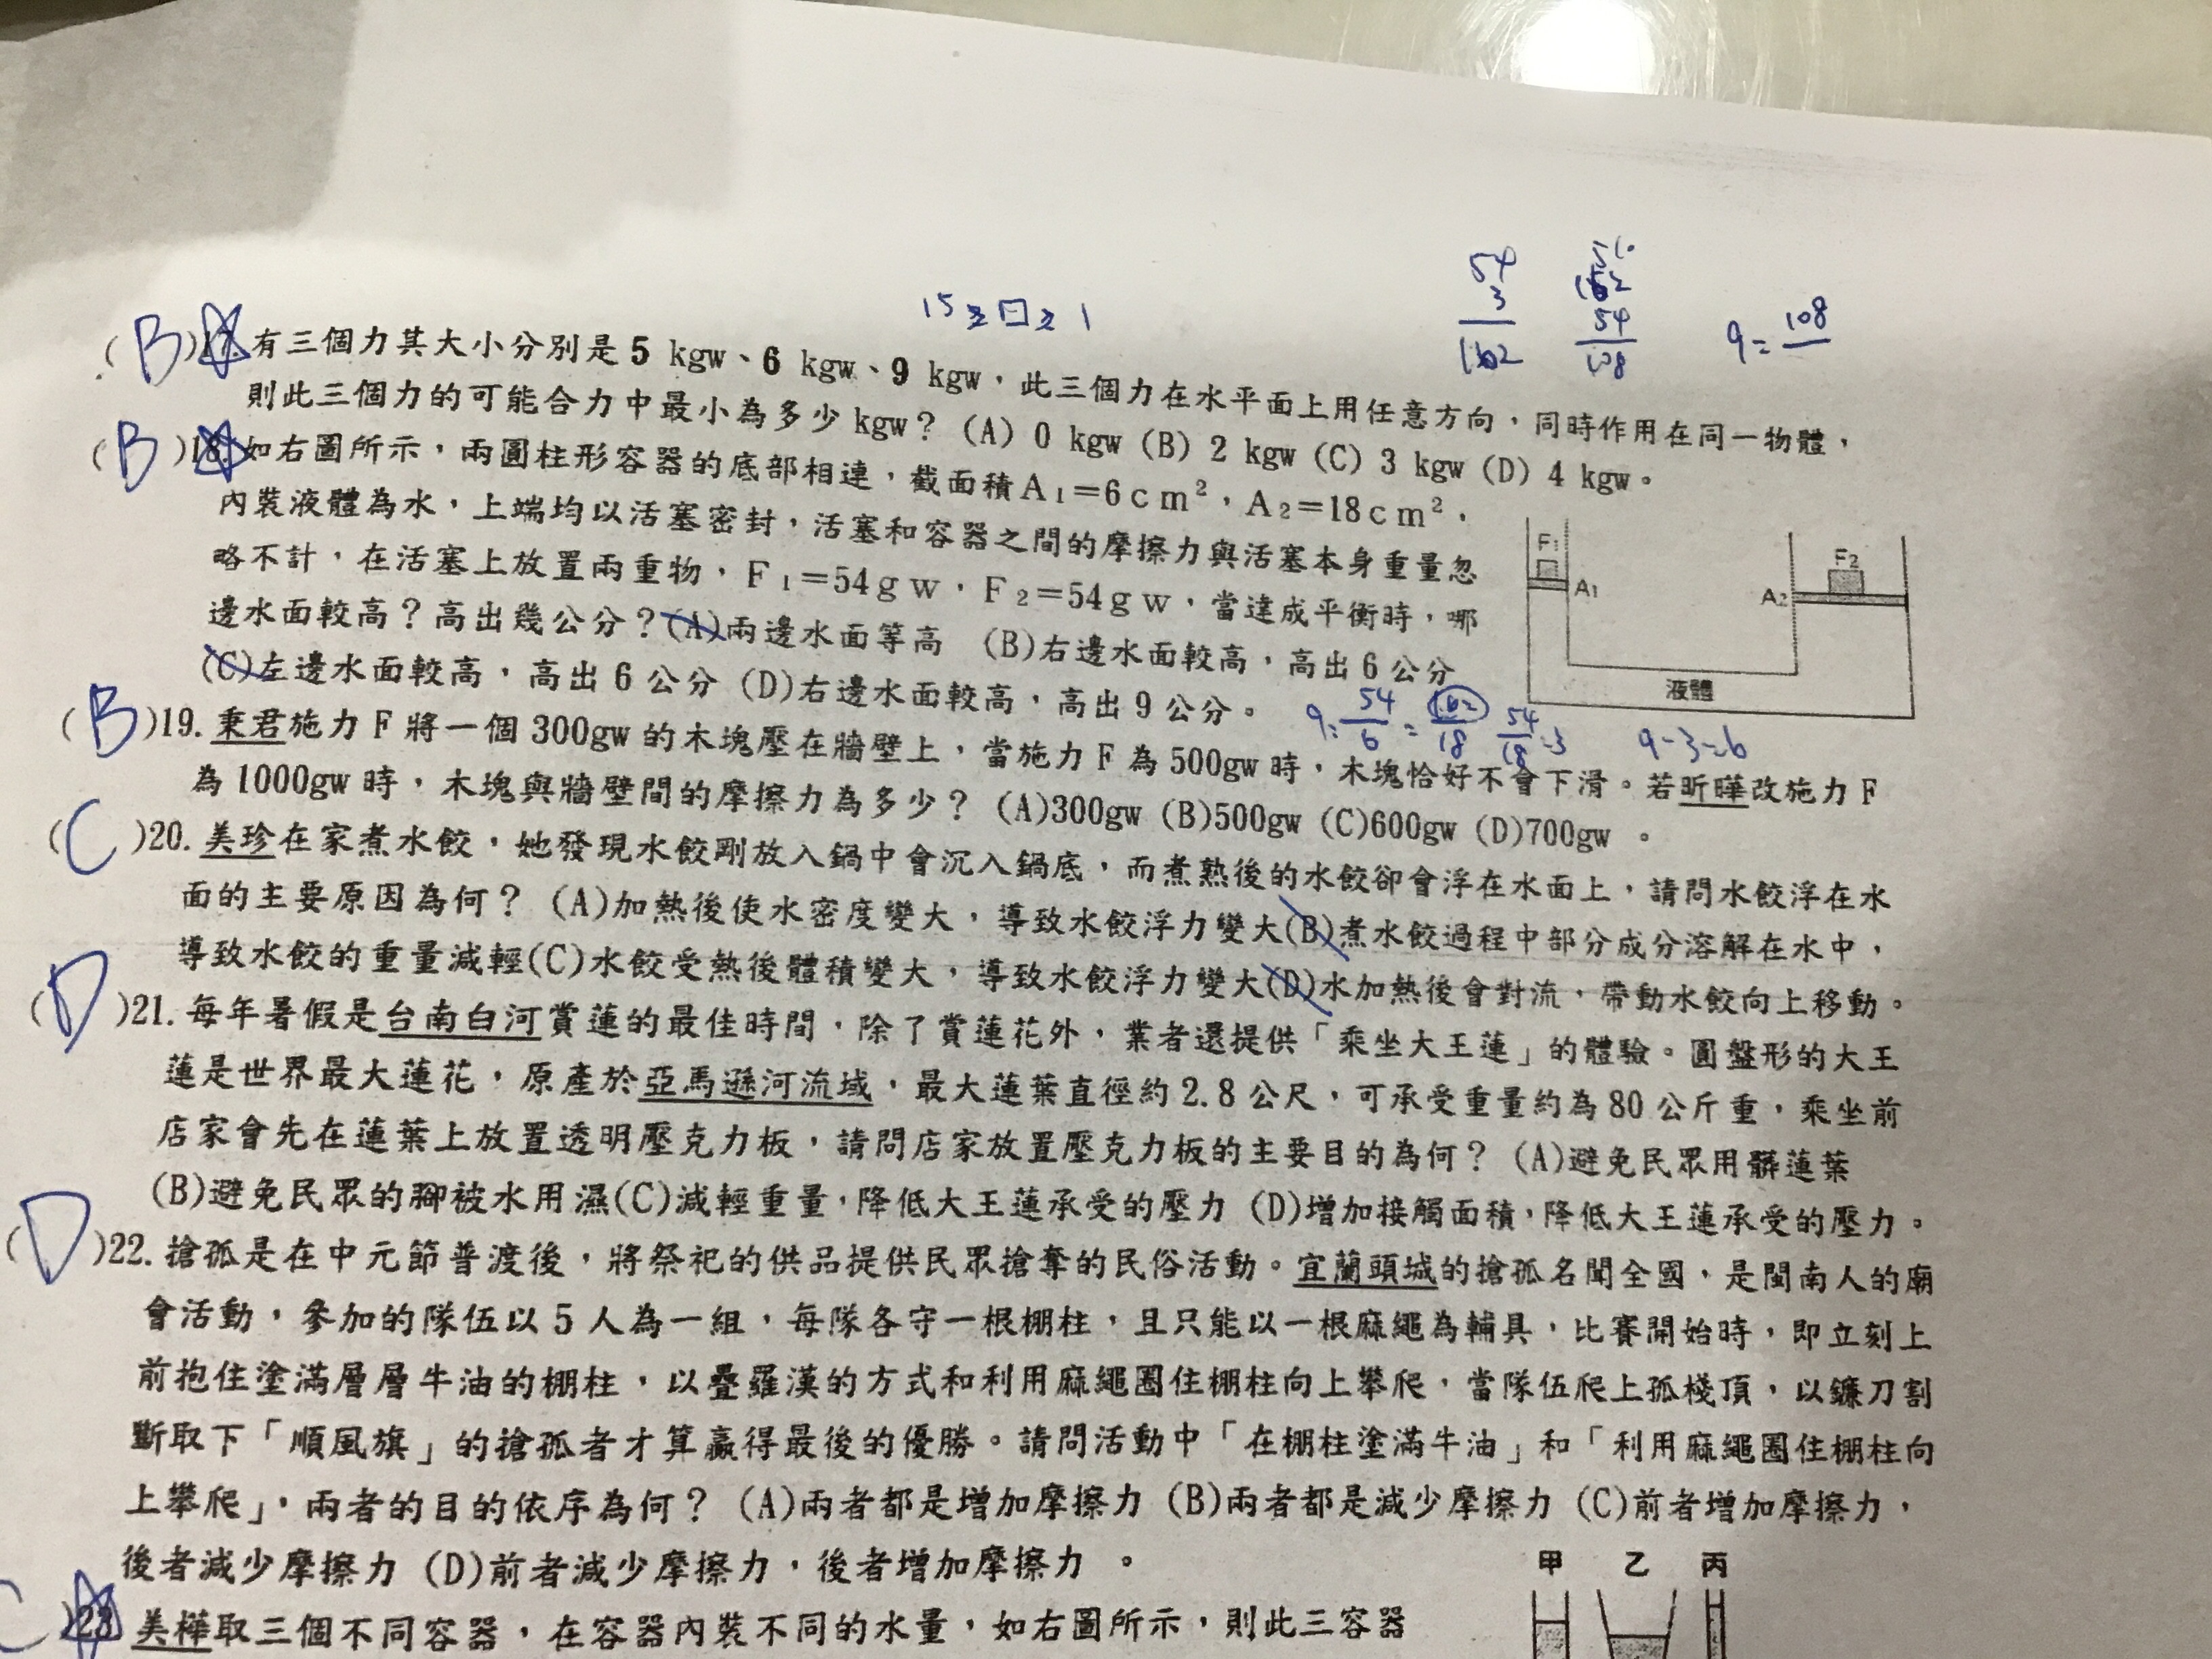 54
3
162
162
54
108
9= 108
(B)17.有三個力其大小分別是 5 kgw、6 kgw、9 kgw，此三個力在水平面上用任意方向，同時作用在同一物體，
則此三個力的可能合力中最小為多少 kgw？ (A) 0 kgw (B) 2 kgw (C) 3 kgw (D) 4 kgw。
(B)18.如右圖所示，兩圓柱形容器的底部相連，截面積A₁=6cm²，A₂=18cm²，
內裝液體為水，上端均以活塞密封，活塞和容器之間的摩擦力與活塞本身重量忽
略不計，在活塞上放置兩重物，F₁=54gw，F₂=54gw，當達成平衡時，哪
邊水面較高？高出幾公分？(A)兩邊水面等高 (B)右邊水面較高，高出 6 公分
(C)左邊水面較高，高出 6 公分 (D)右邊水面較高，高出 9 公分。
F₁
A₁
A₂
F₂
液體
9= 54/6 = 162/18
54/18=3
9-3=6
(B)19.秉君施力 F 將一個 300gw 的木塊壓在牆壁上，當施力 F 為 500gw 時，木塊恰好不會下滑。若昕曄改施力 F
為 1000gw 時，木塊與牆壁間的摩擦力為多少？ (A)300gw (B)500gw (C)600gw (D)700gw 。
(C)20.美珍在家煮水餃，她發現水餃剛放入鍋中會沉入鍋底，而煮熟後的水餃卻會浮在水面上，請問水餃浮在水
面的主要原因為何？ (A)加熱後使水密度變大，導致水餃浮力變大(B)煮水餃過程中部分成分溶解在水中，
導致水餃的重量減輕(C)水餃受熱後體積變大，導致水餃浮力變大(D)水加熱後會對流，帶動水餃向上移動。
(D)21.每年暑假是台南白河賞蓮的最佳時間，除了賞蓮花外，業者還提供「乘坐大王蓮」的體驗。圓盤形的大王
蓮是世界最大蓮花，原產於亞馬遜河流域，最大蓮葉直徑約 2.8 公尺，可承受重量約為 80 公斤重，乘坐前
店家會先在蓮葉上放置透明壓克力板，請問店家放置壓克力板的主要目的為何？ (A)避免民眾用髒蓮葉
(B)避免民眾的腳被水用濕(C)減輕重量，降低大王蓮承受的壓力 (D)增加接觸面積，降低大王蓮承受的壓力。
(D)22.搶孤是在中元節普渡後，將祭祀的供品提供民眾搶奪的民俗活動。宜蘭頭城的搶孤名聞全國，是閩南人的廟
會活動，參加的隊伍以 5 人為一組，每隊各守一根棚柱，且只能以一根麻繩為輔具，比賽開始時，即立刻上
前抱住塗滿層層牛油的棚柱，以疊羅漢的方式和利用麻繩圈住棚柱向上攀爬，當隊伍爬上孤棧頂，以鐮刀割
斷取下「順風旗」的搶孤者才算贏得最後的優勝。請問活動中「在棚柱塗滿牛油」和「利用麻繩圈住棚柱向
上攀爬」，兩者的目的依序為何？ (A)兩者都是增加摩擦力 (B)兩者都是減少摩擦力 (C)前者增加摩擦力，
後者減少摩擦力 (D)前者減少摩擦力，後者增加摩擦力 。
甲 乙 丙
C)23.美樺取三個不同容器，在容器內裝不同的水量，如右圖所示，則此三容器